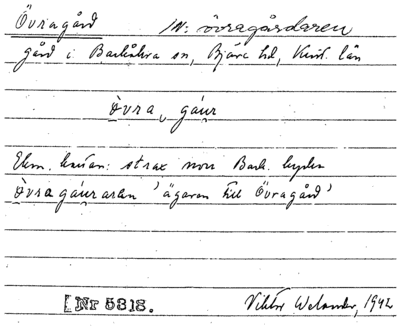 Övragård IN: övragårdaren
gård i Barkåkra sn, Bjäre hd, Krist. län
Òvra gáur
strax norr Bark. kyrka
Òvragáuraren 'ägaren till Övragård'
[Nr 5318. Viktor Welander, 1942